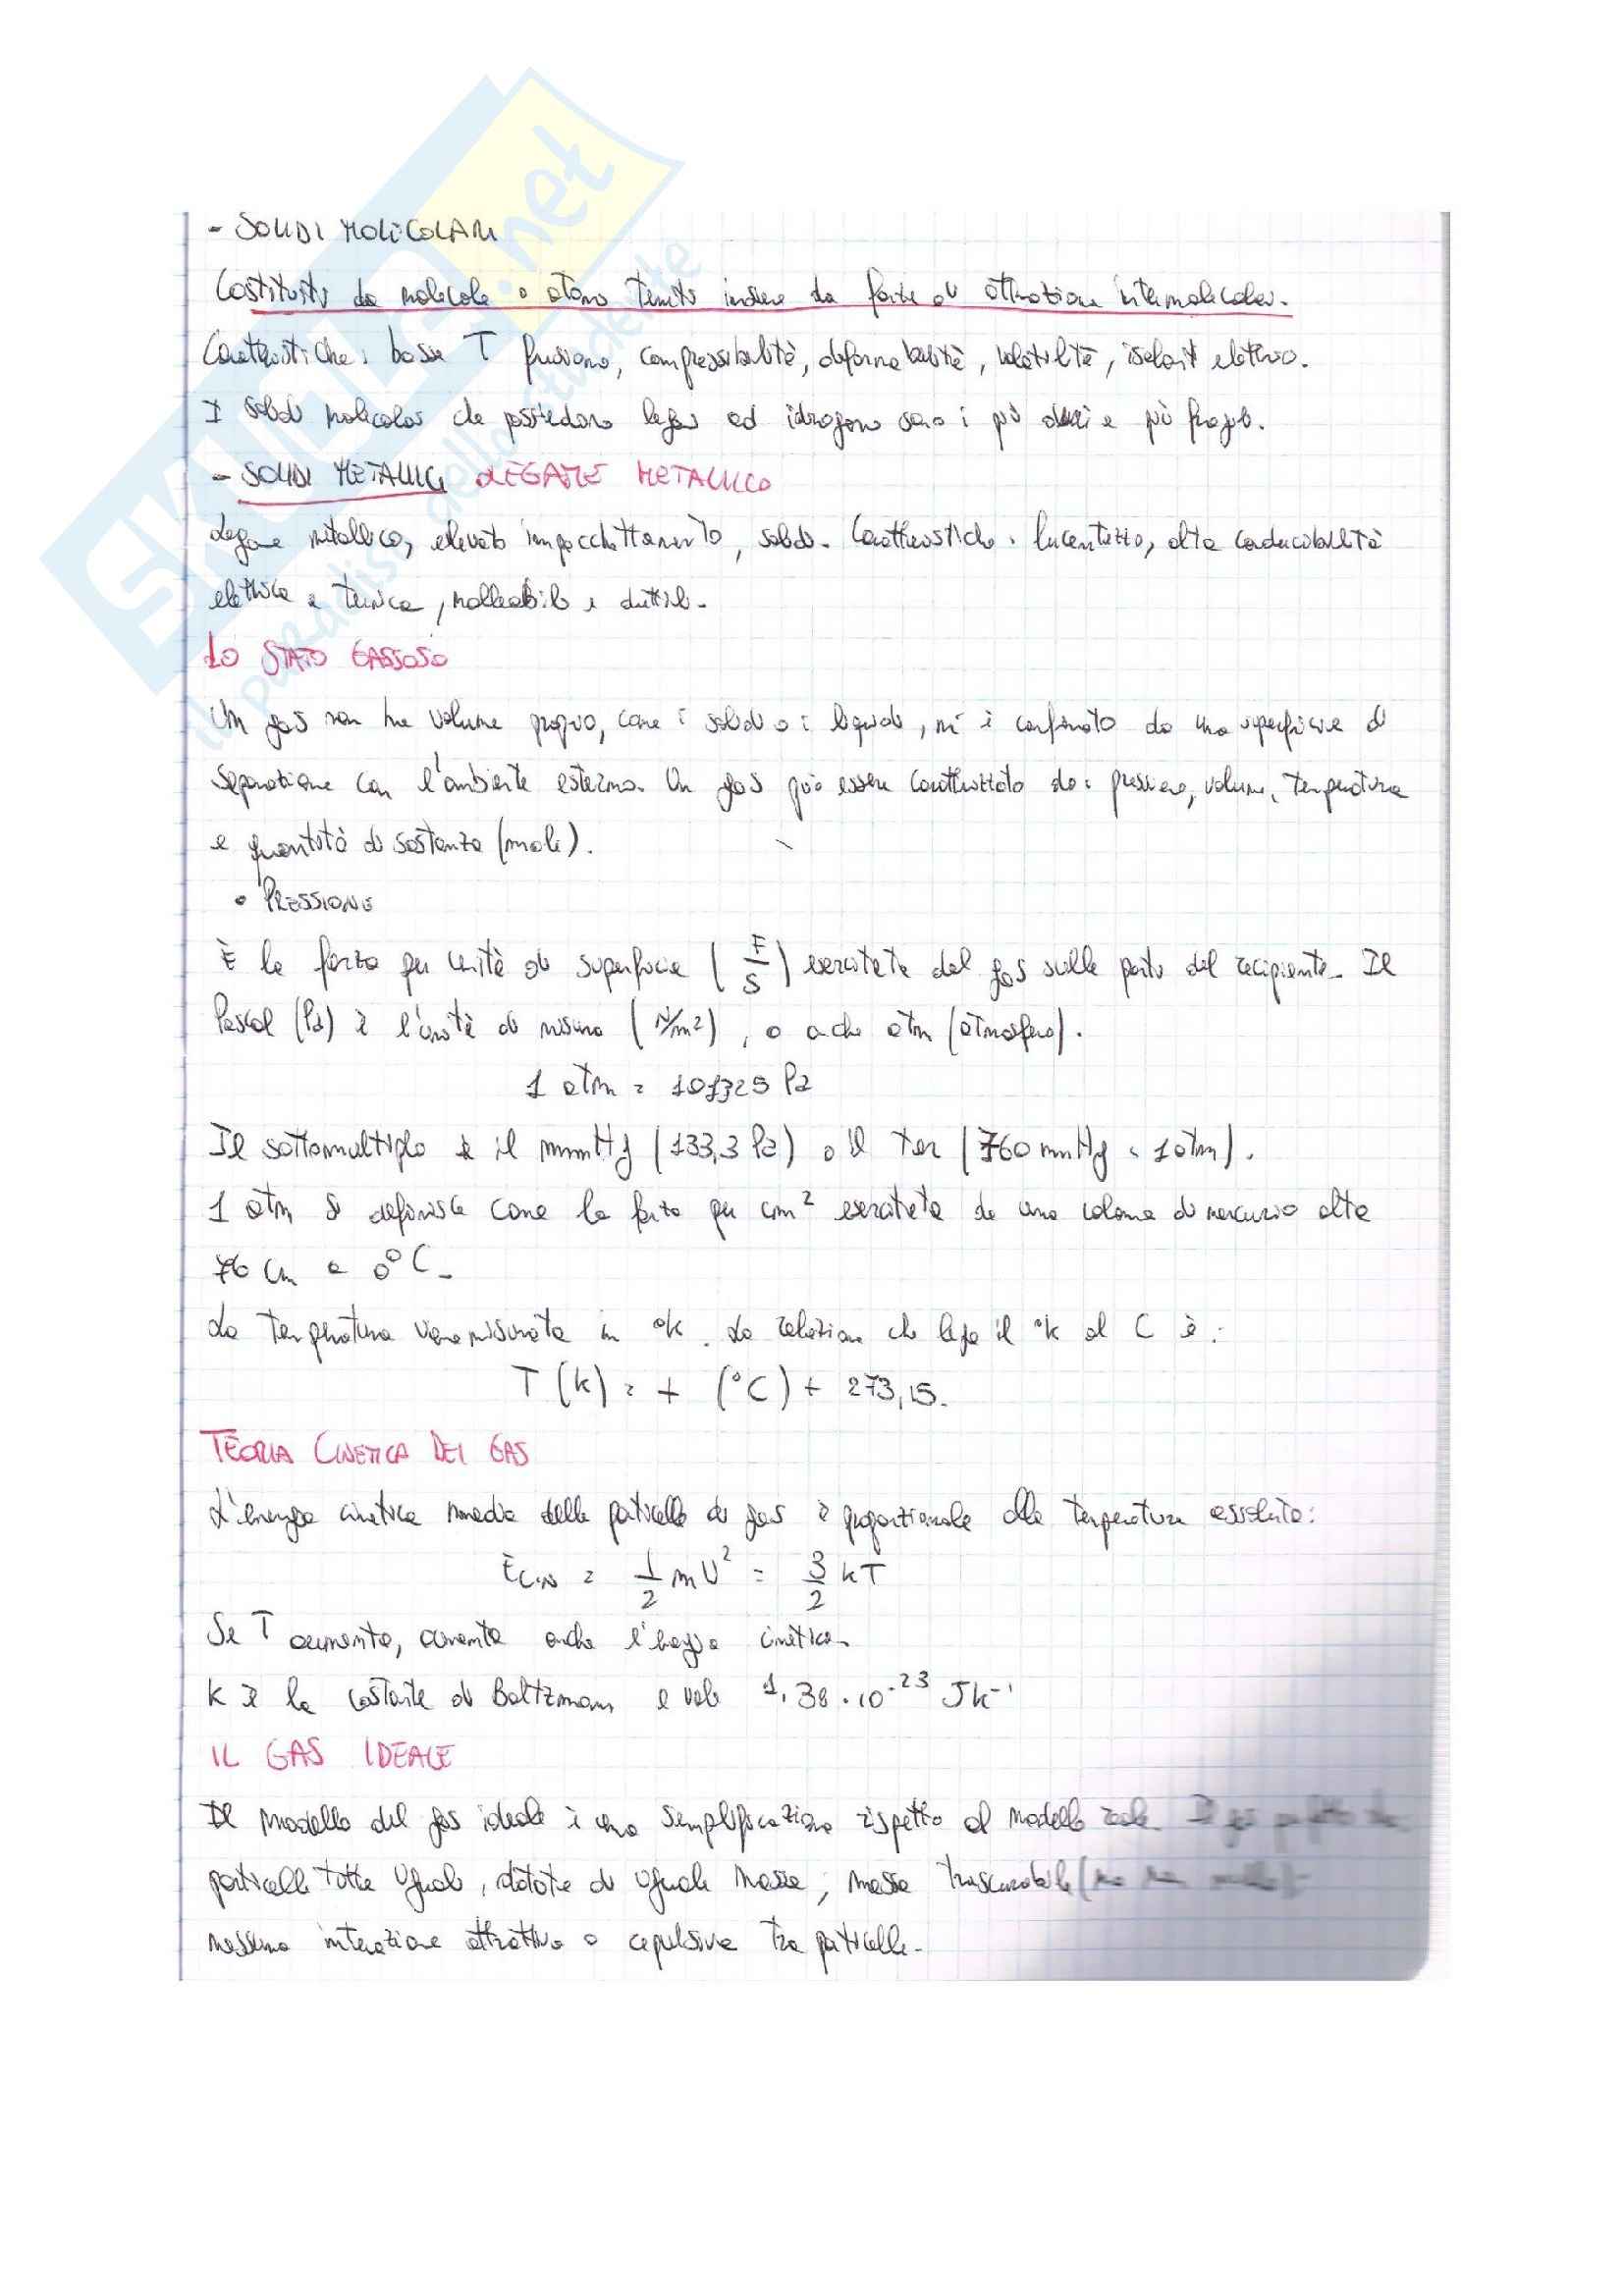 SKUOLA.net
il paradiso dello studente
- SOLIDI MOLECOLARI
Costituiti da molecole o atomi tenuti insieme da forze di attrazione intermolecolari.
Caratteristiche: basse T fusione, compressibilità, deformabilità, volatilità, isolanti elettrici.
I solidi molecolari che possiedono legami ad idrogeno sono i più duri e più fragili.
- SOLIDI METALLICI LEGAME METALLICO
Legame metallico, elevato impacchettamento, solidi. Caratteristiche: lucentezza, alta conducibilità
elettrica e termica, malleabili e duttili.
LO STATO GASSOSO
Un gas non ha volume proprio, come i solidi o i liquidi, nè è confinato da una superficie di
separazione con l'ambiente esterno. Un gas può essere caratterizzato da: pressione, volume, temperatura
e quantità di sostanza (moli).
• PRESSIONE
È la forza per unità di superficie (F/S) esercitata dal gas sulle pareti del recipiente. Il
Pascal (Pa) è l'unità di misura (N/m²), o anche atm (atmosfera).
1 atm = 101325 Pa
Il sottomultiplo è il mmHg (133,3 Pa) o il torr (760 mmHg = 1 atm).
1 atm si definisce come la forza per cm² esercitata da una colonna di mercurio alta
76 cm a 0°C.
La temperatura viene misurata in °K. La relazione che lega il °K al C è:
T (K) = t (°C) + 273,15.
TEORIA CINETICA DEI GAS
L'energia cinetica media delle particelle di gas è proporzionale alla temperatura assoluta:
ECIN = 1/2 mU² = 3/2 kT
Se T aumenta, aumenta anche l'energia cinetica.
K è la costante di Boltzmann e vale 1,38 · 10⁻²³ J k⁻¹
IL GAS IDEALE
Il modello del gas ideale è una semplificazione rispetto al modello reale. Il gas perfetto ha
particelle tutte uguali, dotate di uguale massa; massa trascurabile (ma non nulla);
nessuna interazione attrattiva o repulsiva tra particelle.